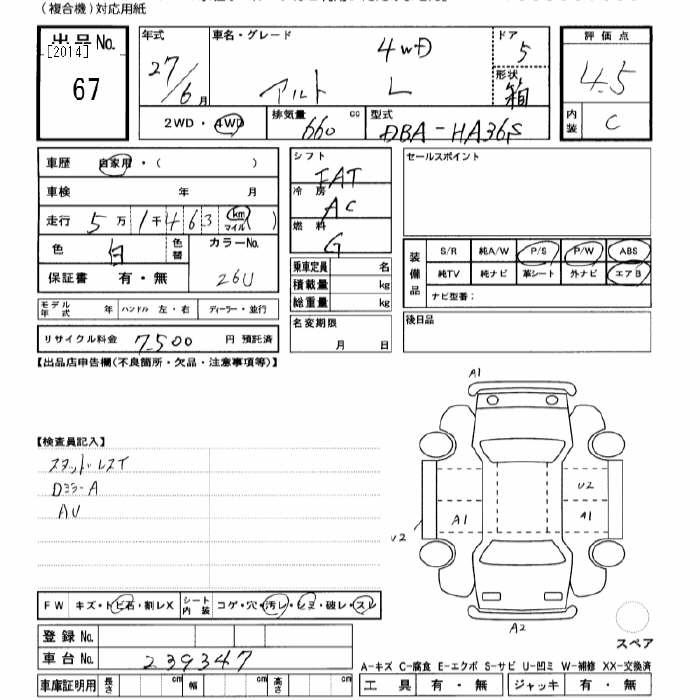 (複合機)対応用紙
出品No.
[2014]
67
年式 車名・グレード ドア 評価点
27/6月 アルト L 4WD 5 4.5
形状 箱
2WD・4WD 排気量 660 cc 型式 DBA-HA36S 内装 C
車歴 自家用・( )
車検 年 月
走行 5万1千463 km マイル( )
色 白 色替 カラーNo. 26U
保証書 有・無
シフト FAT
冷房 AC
燃料 G
乗車定員 名
積載量 kg
総重量 kg
セールスポイント
装備品 S/R 純A/W P/S P/W ABS
純TV 純ナビ 革シート 外ナビ エアB
ナビ型番:
モデル年式 年 ハンドル 左・右 ディーラー・並行
名変期限 月 日
後日品
リサイクル料金 7500 円 預託済
【出品店申告欄(不良箇所・欠品・注意事項等)】
【検査員記入】
スタッドレスT
Dミラー A
AU
A1
U2
A1
A1
U2
A2
スペア
FW キズ・トビ石・割レX シート内装 コゲ・穴・汚レ・シミ・破レ・スレ
登録No.
車台No. 239347
A-キズ C-腐食 E-エクボ S-サビ U-凹ミ W-補修 XX-交換済
車庫証明用 長さ cm 幅 cm 高さ cm 工具 有・無 ジャッキ 有・無